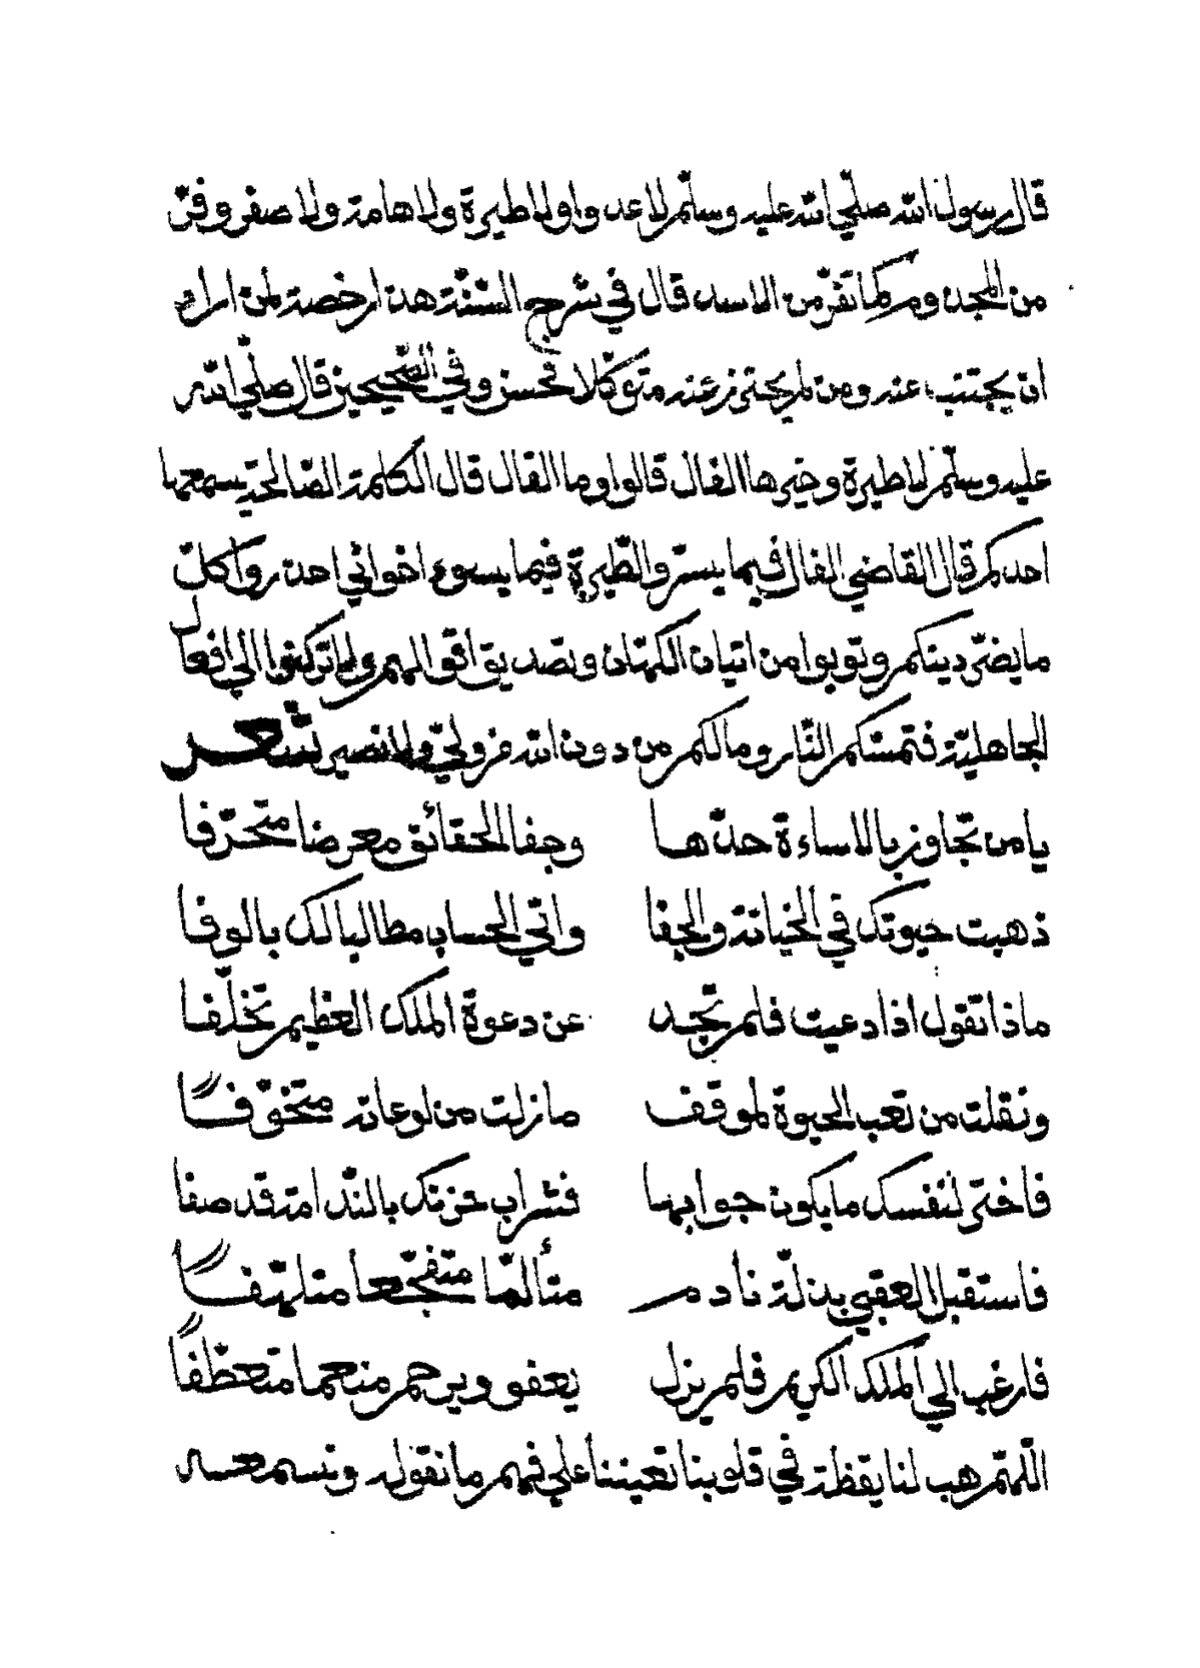 قال رسول الله صلّي الله عليه وسلّم لا عدوا ولا طيرة ولا هامة ولا صفر وفرّ
من المجذوم كما تفرّ من الاسد قال في شرح السّنّة هذا رخصة لمن اراد
ان يجتنب عنه ومن لم يحترز عنه متوكّلا فحسن وفي الصّحيحين قال صلّي الله
عليه وسلّم لا طيرة وخيرها الفال قالوا وما الفال قال الكلمة الصّالحة يسمعها
احدكم قال القاضي الفال فيما يسرّ والطّيرة فيما يسوء اخواني احذروا كلّ
ما يضرّ دينكم وتوبوا من اتيان الكهّان وتصديق اقوالهم ولا تركنوا الي افعال
الجاهليّة فتمسّكم النّار ومالكم من دون الله من وليّ ولا نصير شعر
يا من تجاوز بالاساءة حدّها وجفا الحقائق معرضا متحرّفا
ذهبت حيوتك في الخيانة والجفا واتي الحساب مطالبا لك بالوفا
ماذا تقول اذا دعيت فلم تجد عن دعوة الملك العظيم تخلّفا
ونقلت من تعب الحيوة لموقف مازلت من لوعاته متخوّفًا
فاختر لنفسك ما يكون جوابها فشراب حزنك بالنّدامة قد صفا
فاستقبل العقبي بذلّة نادم متألّما متفجّعا متلهّفًا
فارغب الي الملك الكريم فلم يزل يعفو ويرحم منعما متعطّفًا
اللّهمّ هب لنا يقظة في قلوبنا تعيننا علي فهم ما نقول ونسمعه